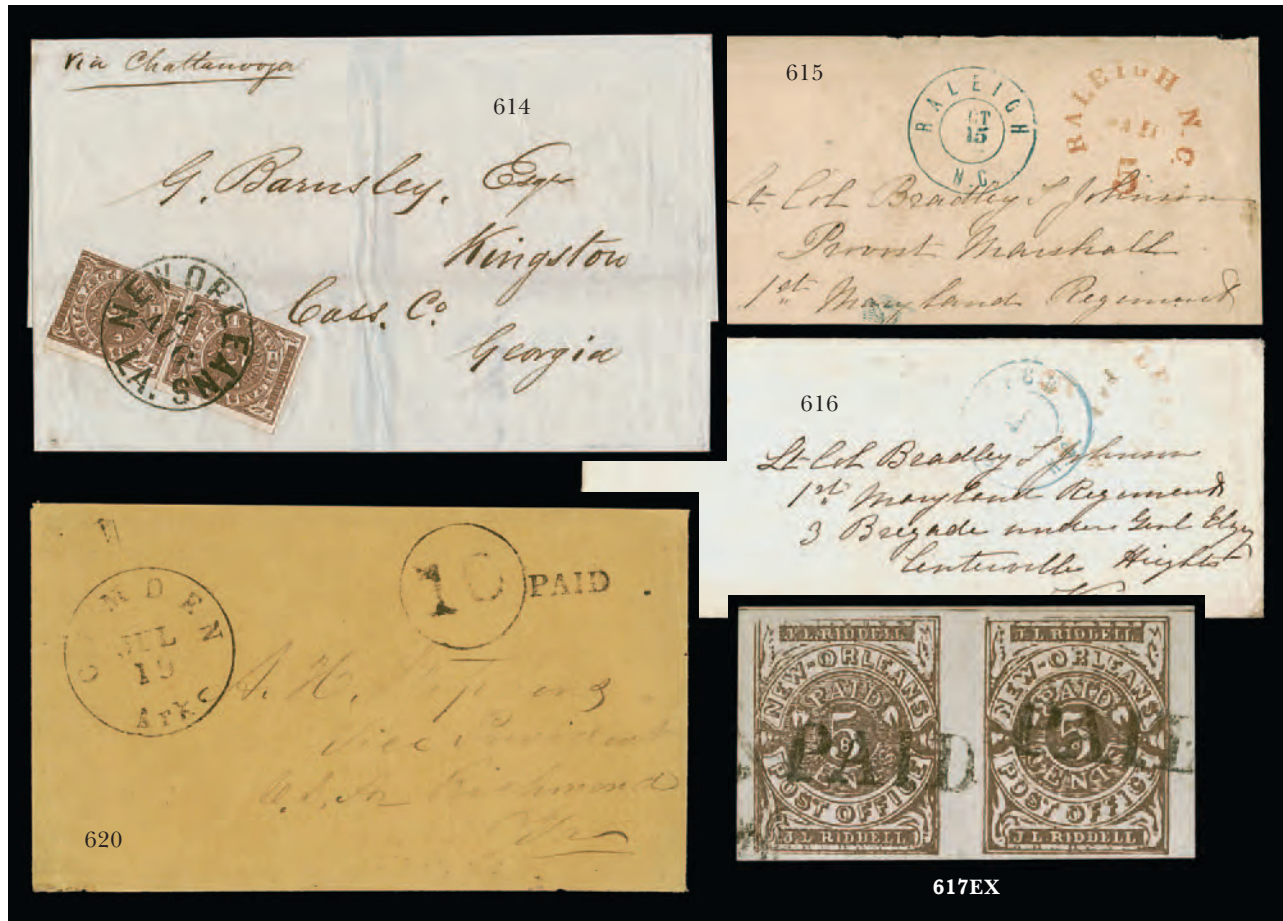 via Chattanooga
614
G. Barnsley, Esqr
Kingston
Cass. Co
Georgia
NEW ORLEANS
8
AUG
LA.
615
RALEIGH
15
N.C.
RALEIGH N.C.
5
Lt Col Bradley T Johnson
Provost Marshall
1st Maryland Regiment
616
Lt Col Bradley T Johnson
1st Maryland Regiment
3 Brigade under Genl Elzey
Centerville Heights
CAMDEN
JUL
19
Arks
10
PAID
A. H.
Vice President
Richmond
620
J. L. RIDDELL
NEW-ORLEANS
PAID
5
CENTS
POST OFFICE
J. L. RIDDELL
PAID
J. L. RIDDELL
NEW-ORLEANS
PAID
5
CENTS
POST OFFICE
J. L. RIDDELL
PAID
617EX